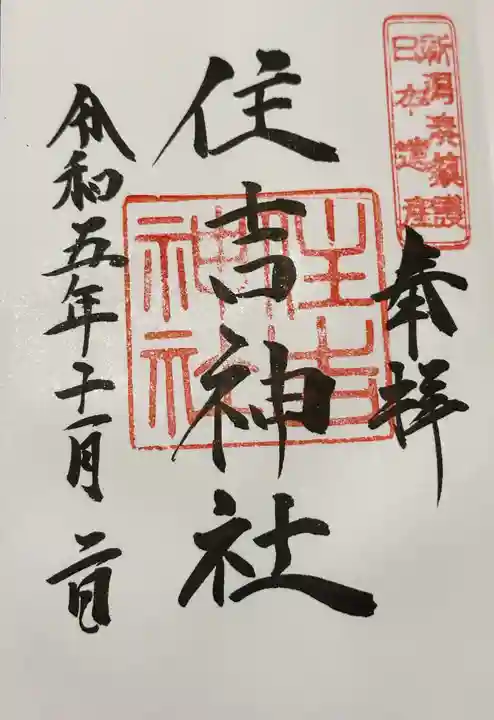 新潟湊鎮護
日本遺産
奉拝
住吉神社
住吉
神社
令和五年十一月二日